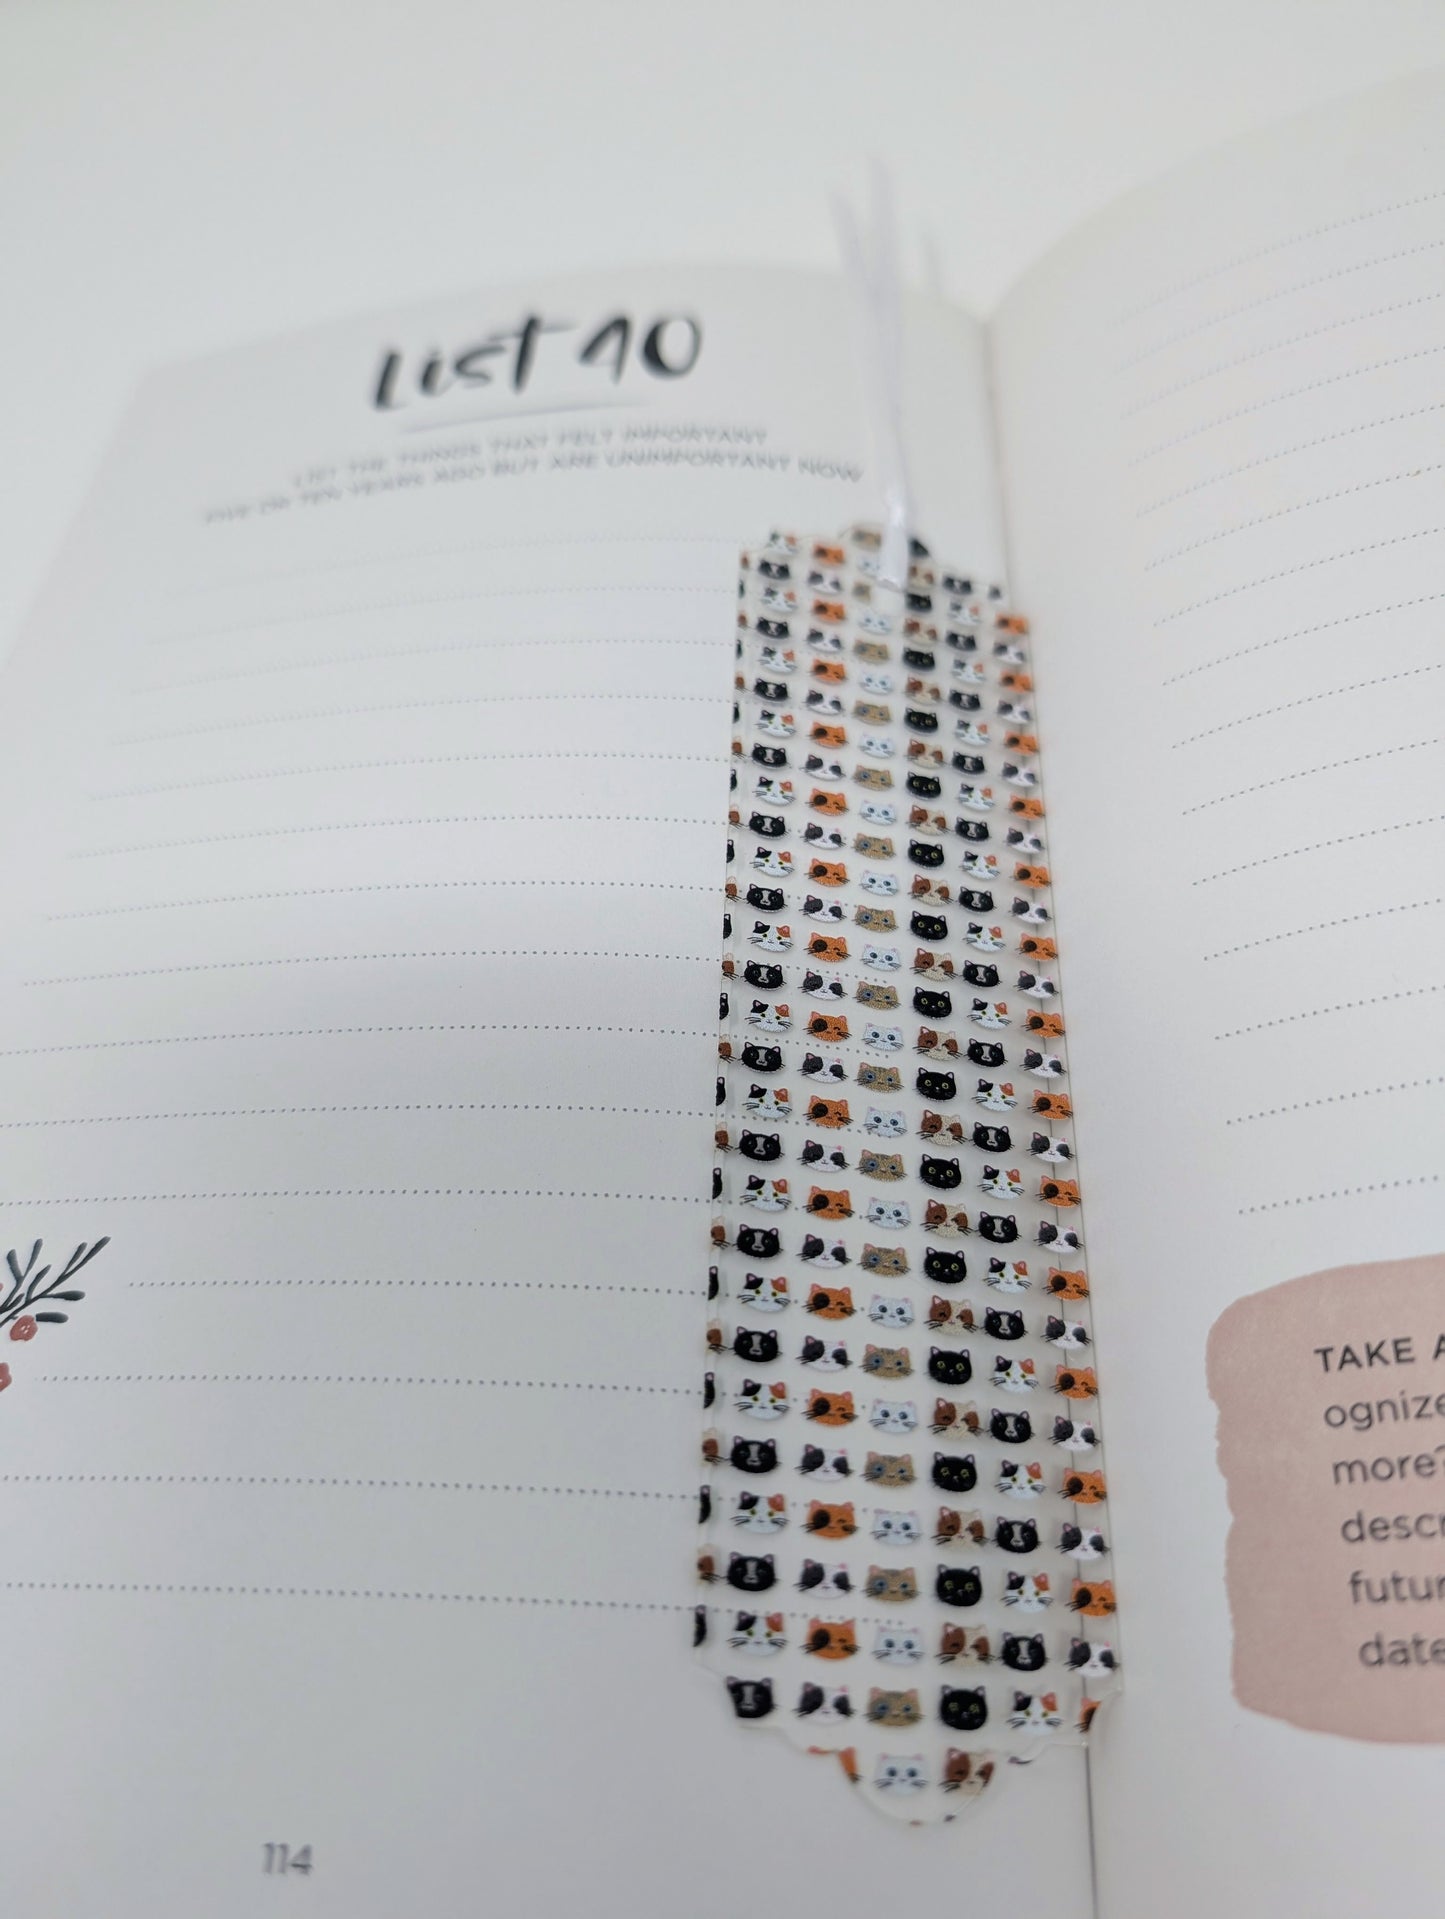 List 40
LIST THE THINGS THAT FELT IMPORTANT
FIVE OR TEN YEARS AGO BUT ARE UNIMPORTANT NOW
TAKE A
ognize
more?
descr
futur
date
114